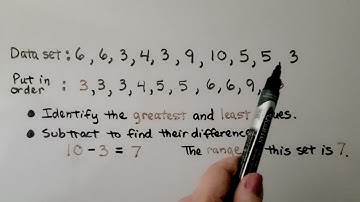 Data set: 6, 6, 3, 4, 3, 9, 10, 5, 5, 3
Put in
order : 3, 3, 3, 4, 5, 5, 6, 6, 9,
• Identify the greatest and least
• Subtract to find their difference
10 - 3 = 7 The range this set is 7.